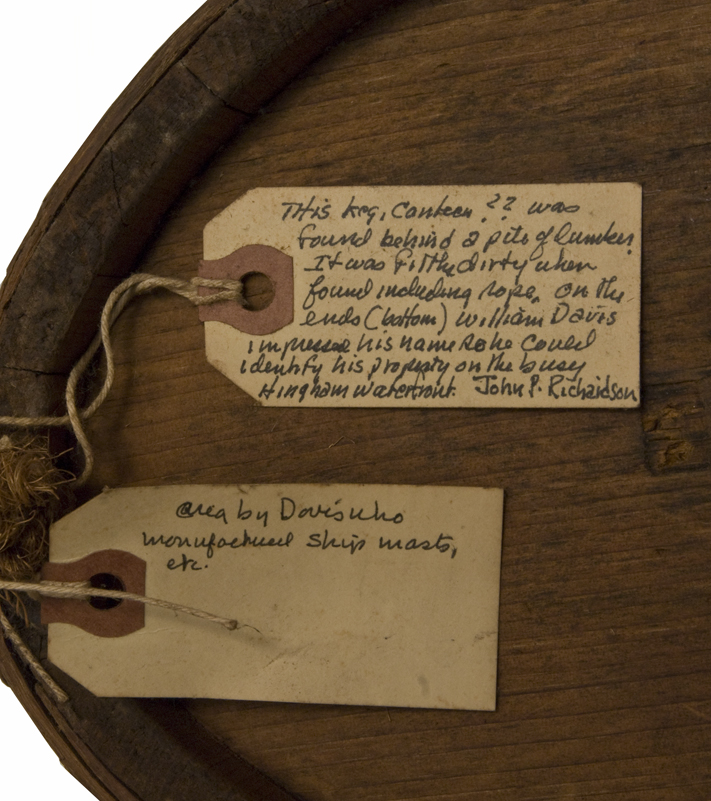 This keg, Canteen ?? was
found behind a pile of lumber.
It was filthe dirty when
found including rope, on the
ends (bottom) William Davis
impressed his name so he could
identify his property on the busy
Hingham waterfront. John P. Richardson
area by Davis who
manufactured ship masts,
etc.